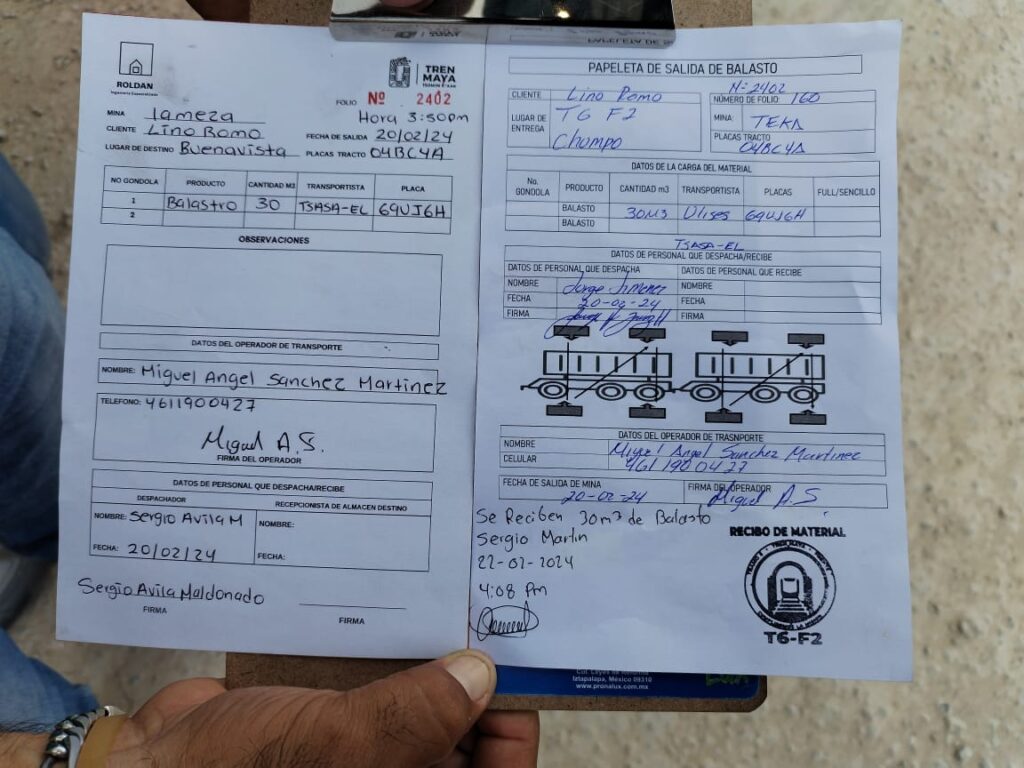 ROLDAN
TREN MAYA
FOLIO Nº 2402
Hora 3:50pm
MINA Lameza
CLIENTE Lino Romo
FECHA DE SALIDA 20/02/24
LUGAR DE DESTINO Buenavista
PLACAS TRACTO 04BC4A
NO GONDOLA PRODUCTO CANTIDAD M3 TRANSPORTISTA PLACA
1 Balastro 30 TSASA-EL 69UJ6H
2
OBSERVACIONES
DATOS DEL OPERADOR DE TRANSPORTE
NOMBRE: Miguel Angel Sanchez Martinez
TELEFONO: 4611900427
Miguel A.S.
FIRMA DEL OPERADOR
DATOS DE PERSONAL QUE DESPACHA/RECIBE
DESPACHADOR RECEPCIONISTA DE ALMACEN DESTINO
NOMBRE: Sergio Avila M NOMBRE:
FECHA: 20/02/24 FECHA:
Sergio Avila Maldonado
FIRMA FIRMA
PAPELETA DE SALIDA DE BALASTO
Nº 2402
CLIENTE Lino Romo
NÚMERO DE FOLIO 160
LUGAR DE ENTREGA T6 F2
Chumpo
MINA: TEKA
PLACAS TRACTO
04BC4A
DATOS DE LA CARGA DEL MATERIAL
No. GONDOLA PRODUCTO CANTIDAD m3 TRANSPORTISTA PLACAS FULL/SENCILLO
BALASTO 30M3 Ulises 69UJ6H
BALASTO
TSASA-EL
DATOS DE PERSONAL QUE DESPACHA/RECIBE
DATOS DE PERSONAL QUE DESPACHA DATOS DE PERSONAL QUE RECIBE
NOMBRE Jorge Jimenez NOMBRE
FECHA 20-02-24 FECHA
FIRMA FIRMA
DATOS DEL OPERADOR DE TRASNPORTE
NOMBRE Miguel Angel Sanchez Martinez
CELULAR 461 190 0427
FECHA DE SALIDA DE MINA FIRMA DEL OPERADOR
20-02-24 Miguel A.S
Se Reciben 30m³ de Balasto
Sergio Martin
22-02-2024
4:08 Pm
RECIBO DE MATERIAL
T6-F2
Iztapalapa, México 09310
www.pronalux.com.mx